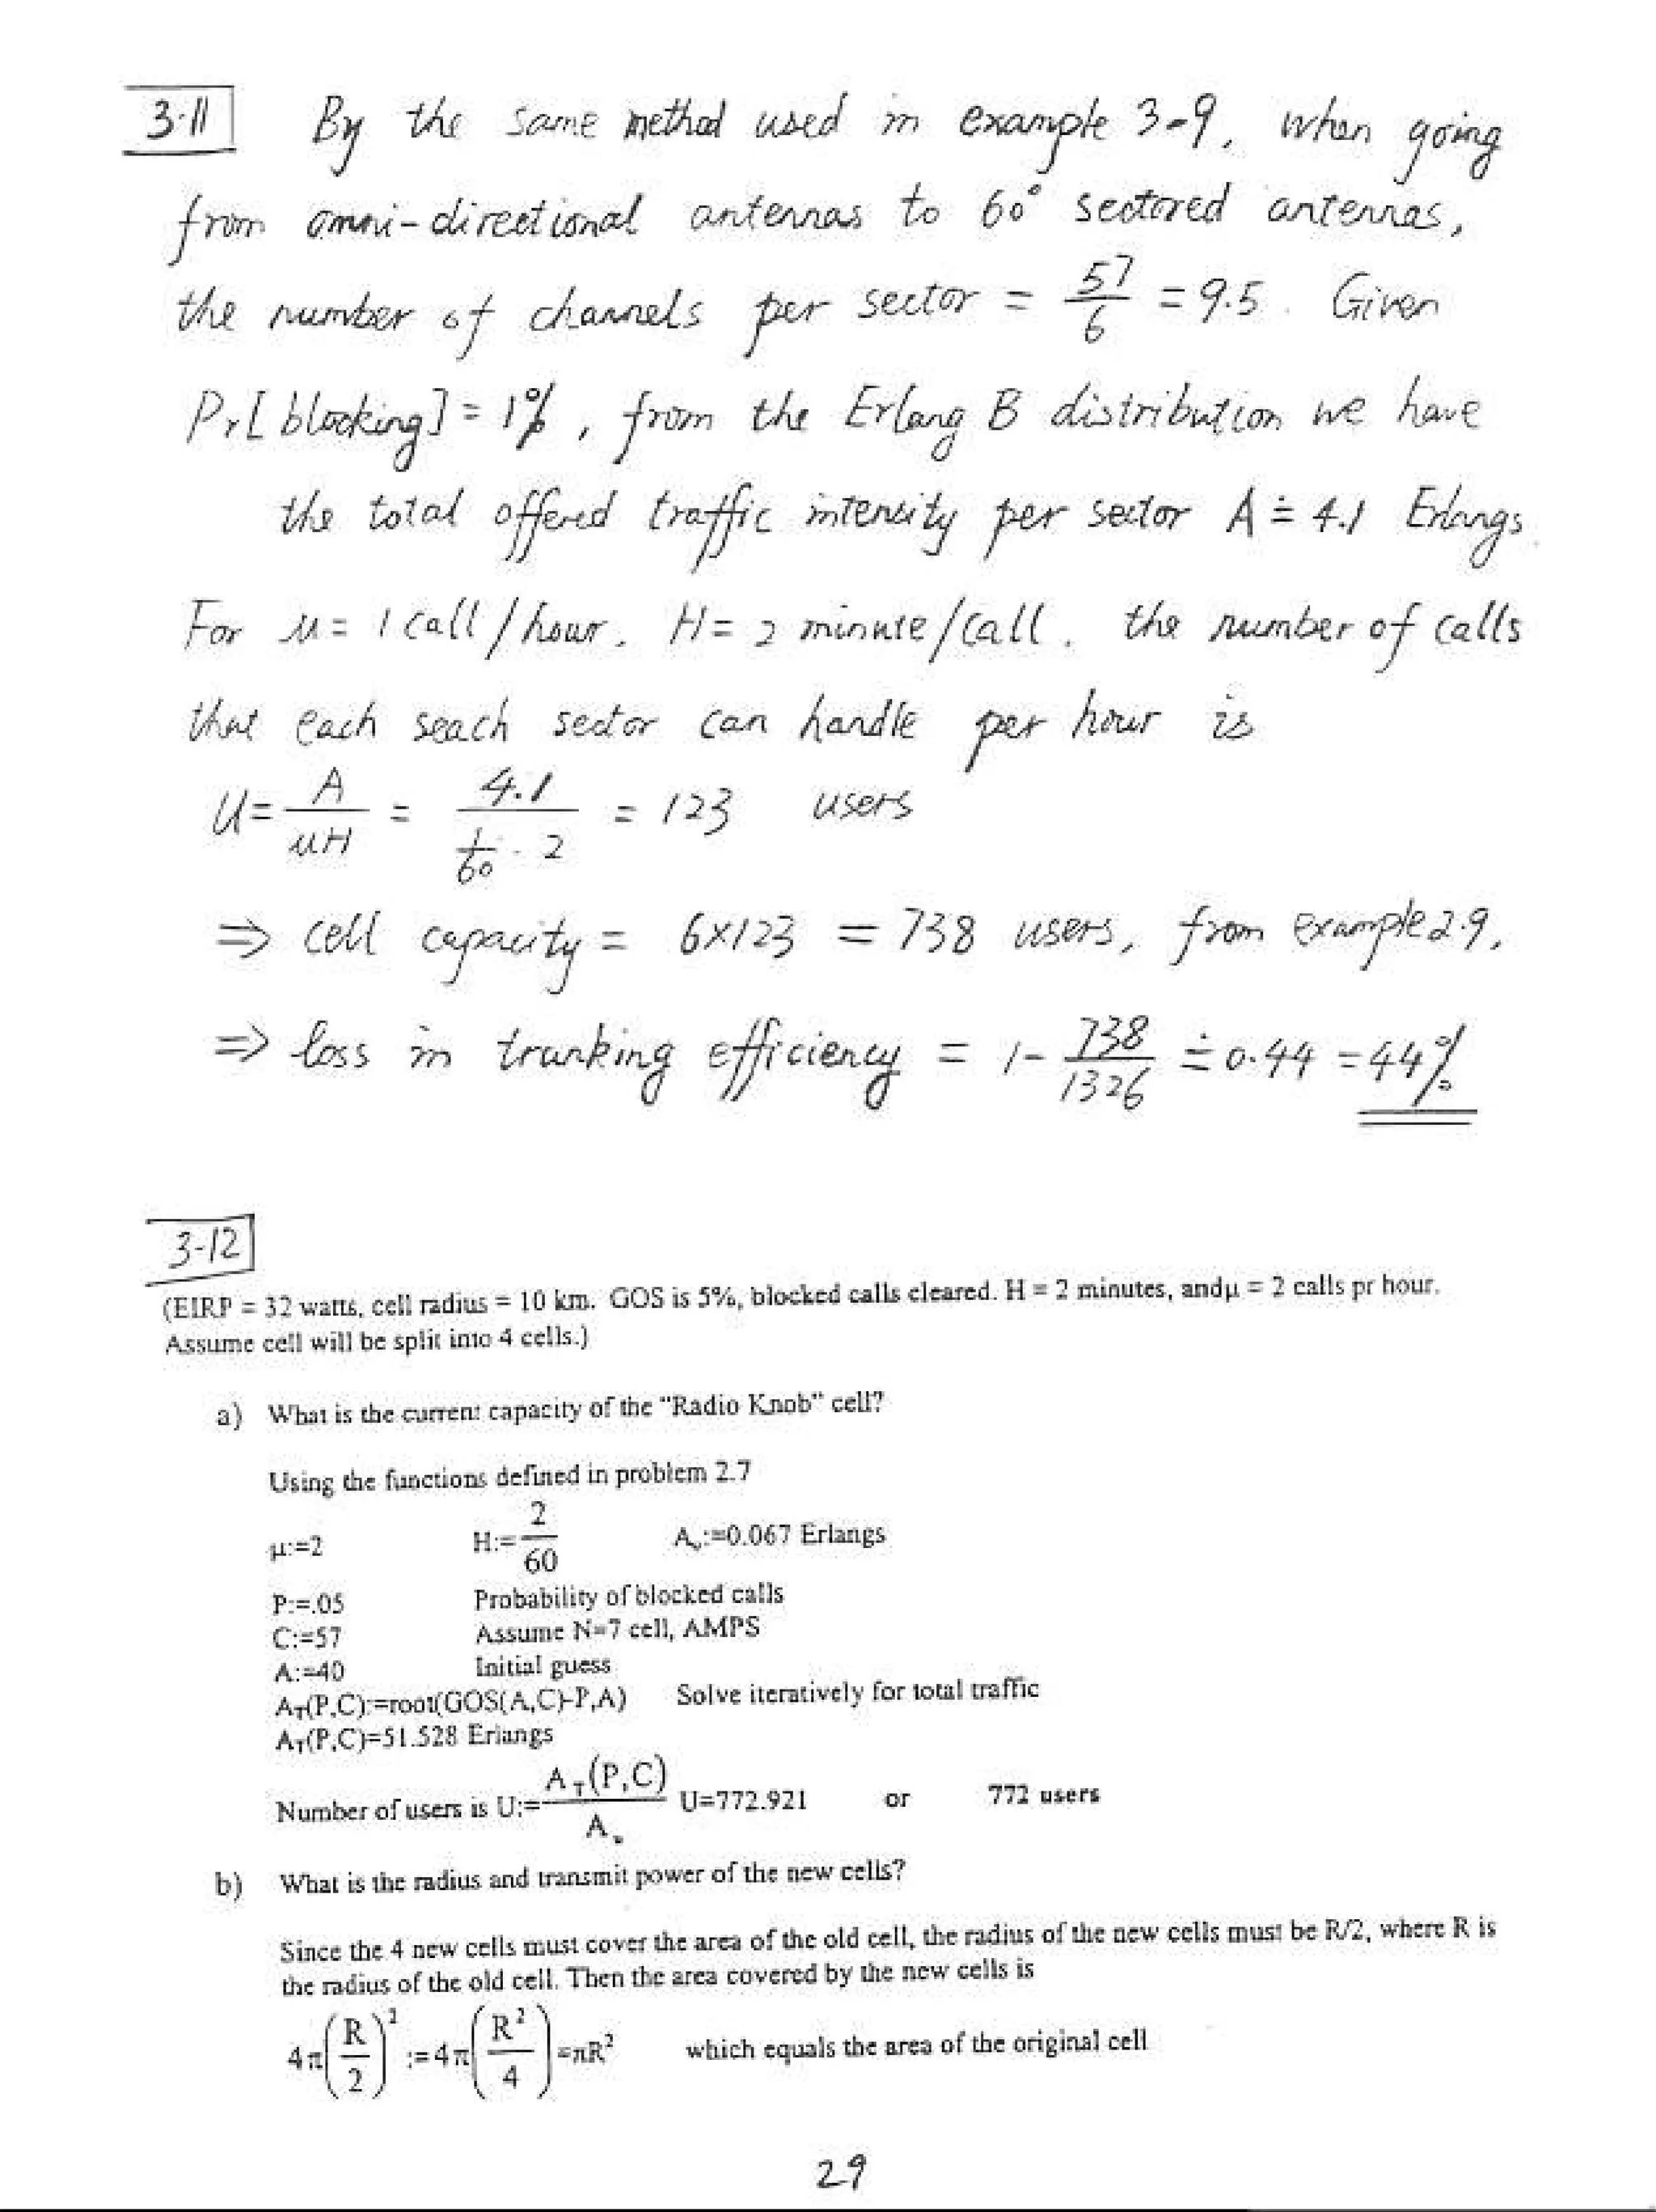 3-11 By the same method used in example 3-9, when going
from omni-directional antennas to 60° sectored antennas,
the number of channels per sector = 57/6 = 9.5. Given
Pr[blocking] = 1%, from the Erlang B distribution we have
the total offered traffic intensity per sector A ≐ 4.1 Erlangs.
For μ = 1 call/hour. H = 2 minute/call. the number of calls
that each seach sector can handle per hour is
U = A/μH = 4.1/(1/60 · 2) = 123 users
⇒ cell capacity = 6×123 = 738 users, from example 2.9,
⇒ loss in trunking efficiency = 1 - 738/1326 ≐ 0.44 = 44%
3-12
(EIRP = 32 watts, cell radius = 10 km. GOS is 5%, blocked calls cleared. H = 2 minutes, andμ = 2 calls pr hour.
Assume cell will be split into 4 cells.)
a) What is the current capacity of the "Radio Knob" cell?
Using the functions defined in problem 2.7
μ:=2 H:=2/60 Aᵤ:=0.067 Erlangs
P:=.05 Probability of blocked calls
C:=57 Assume N=7 cell, AMPS
A:=40 Initial guess
A_T(P,C):=root(GOS(A,C)-P,A) Solve iteratively for total traffic
A_T(P,C)=51.528 Erlangs
Number of users is U:=A_T(P,C)/Aᵤ U=772.921 or 772 users
b) What is the radius and transmit power of the new cells?
Since the 4 new cells must cover the area of the old cell, the radius of the new cells must be R/2, where R is
the radius of the old cell. Then the area covered by the new cells is
4π(R/2)² :=4π(R²/4)=πR² which equals the area of the original cell
29